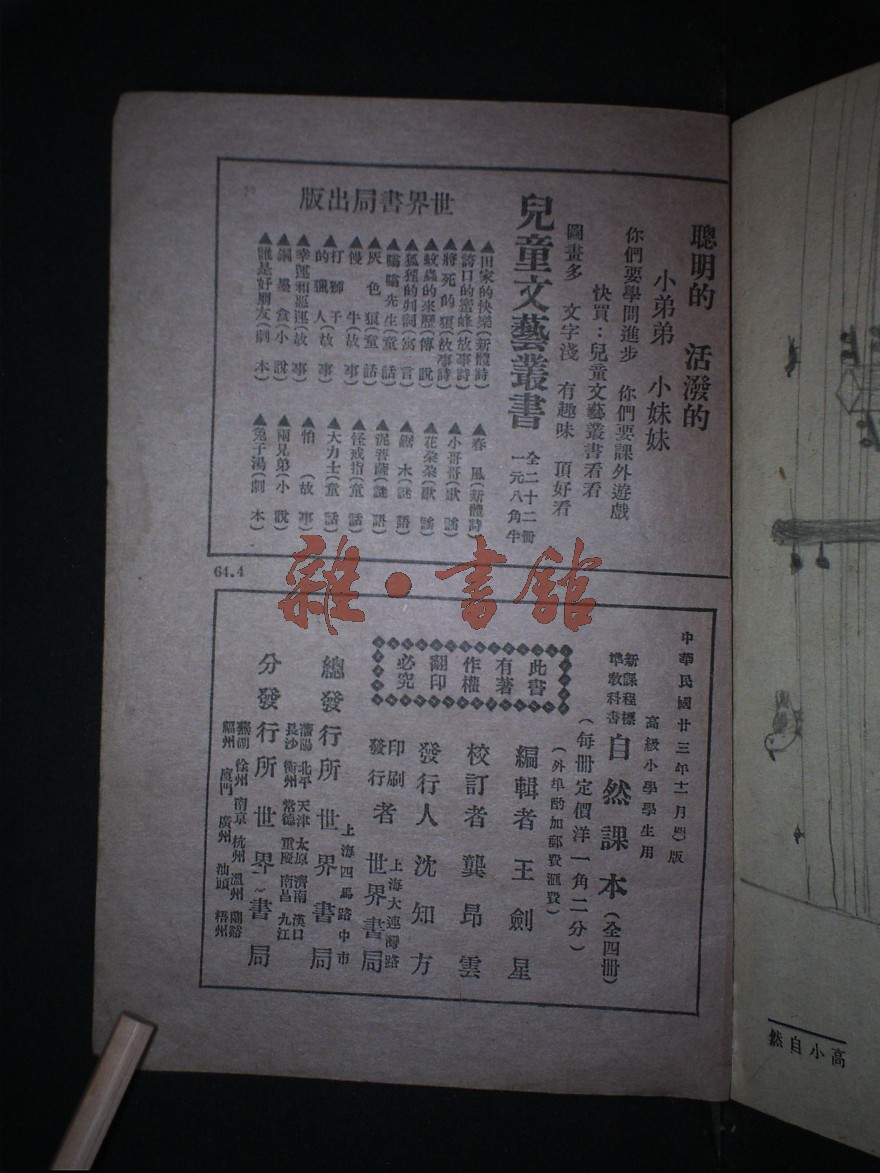 聰明的 活潑的
小弟弟 小妹妹
你們要學問進步 你們要課外遊戲
快買：兒童文藝叢書看看
圖畫多 文字淺 有趣味 頂好看
兒童文藝叢書
全二十二冊
一元八角半
世界書局出版
▲田家的快樂(新體詩)
▲誇口的蜜蜂(故事詩)
▲將死的狼(故事詩)
▲蚊蟲的來歷(傳說)
▲狐狸的判斷(寓言)
▲瞎瞎先生(童話)
▲灰色狼(童話)
▲慢牛(故事)
▲打獅子的職人(故事)
▲幸運和惡運(故事)
▲銅墨盒(小說)
▲誰是好朋友(劇本)
▲春風(新體詩)
▲小哥哥(歌謠)
▲花朵朵(歌謠)
▲鋸木(謎語)
▲泥菩薩(謎語)
▲怪戒指(童話)
▲大力士(童話)
▲怕(故事)
▲兩兄弟(小說)
▲兔子湯(劇本)
64.4
雜·書館
中華民國廿三年十一月 版
高級小學學生用
新課程標準教科書
自然課本(全四冊)
(每冊定價洋一角二分)
(外埠酌加郵費滙費)
此書
有著
作權
翻印
必究
編輯者 王劍星
校訂者 龔昂雲
發行人 沈知方
印刷發行者 上海大連灣路 世界書局
上海四馬路中市
總發行所 世界書局
瀋陽 北平 天津 太原 濟南 漢口
長沙 衡州 常德 重慶 南昌 九江
分發行所 世界書局
蕪湖 徐州 南京 杭州 溫州 蘭谿
福州 廈門 廣州 汕頭 梧州
高小自然